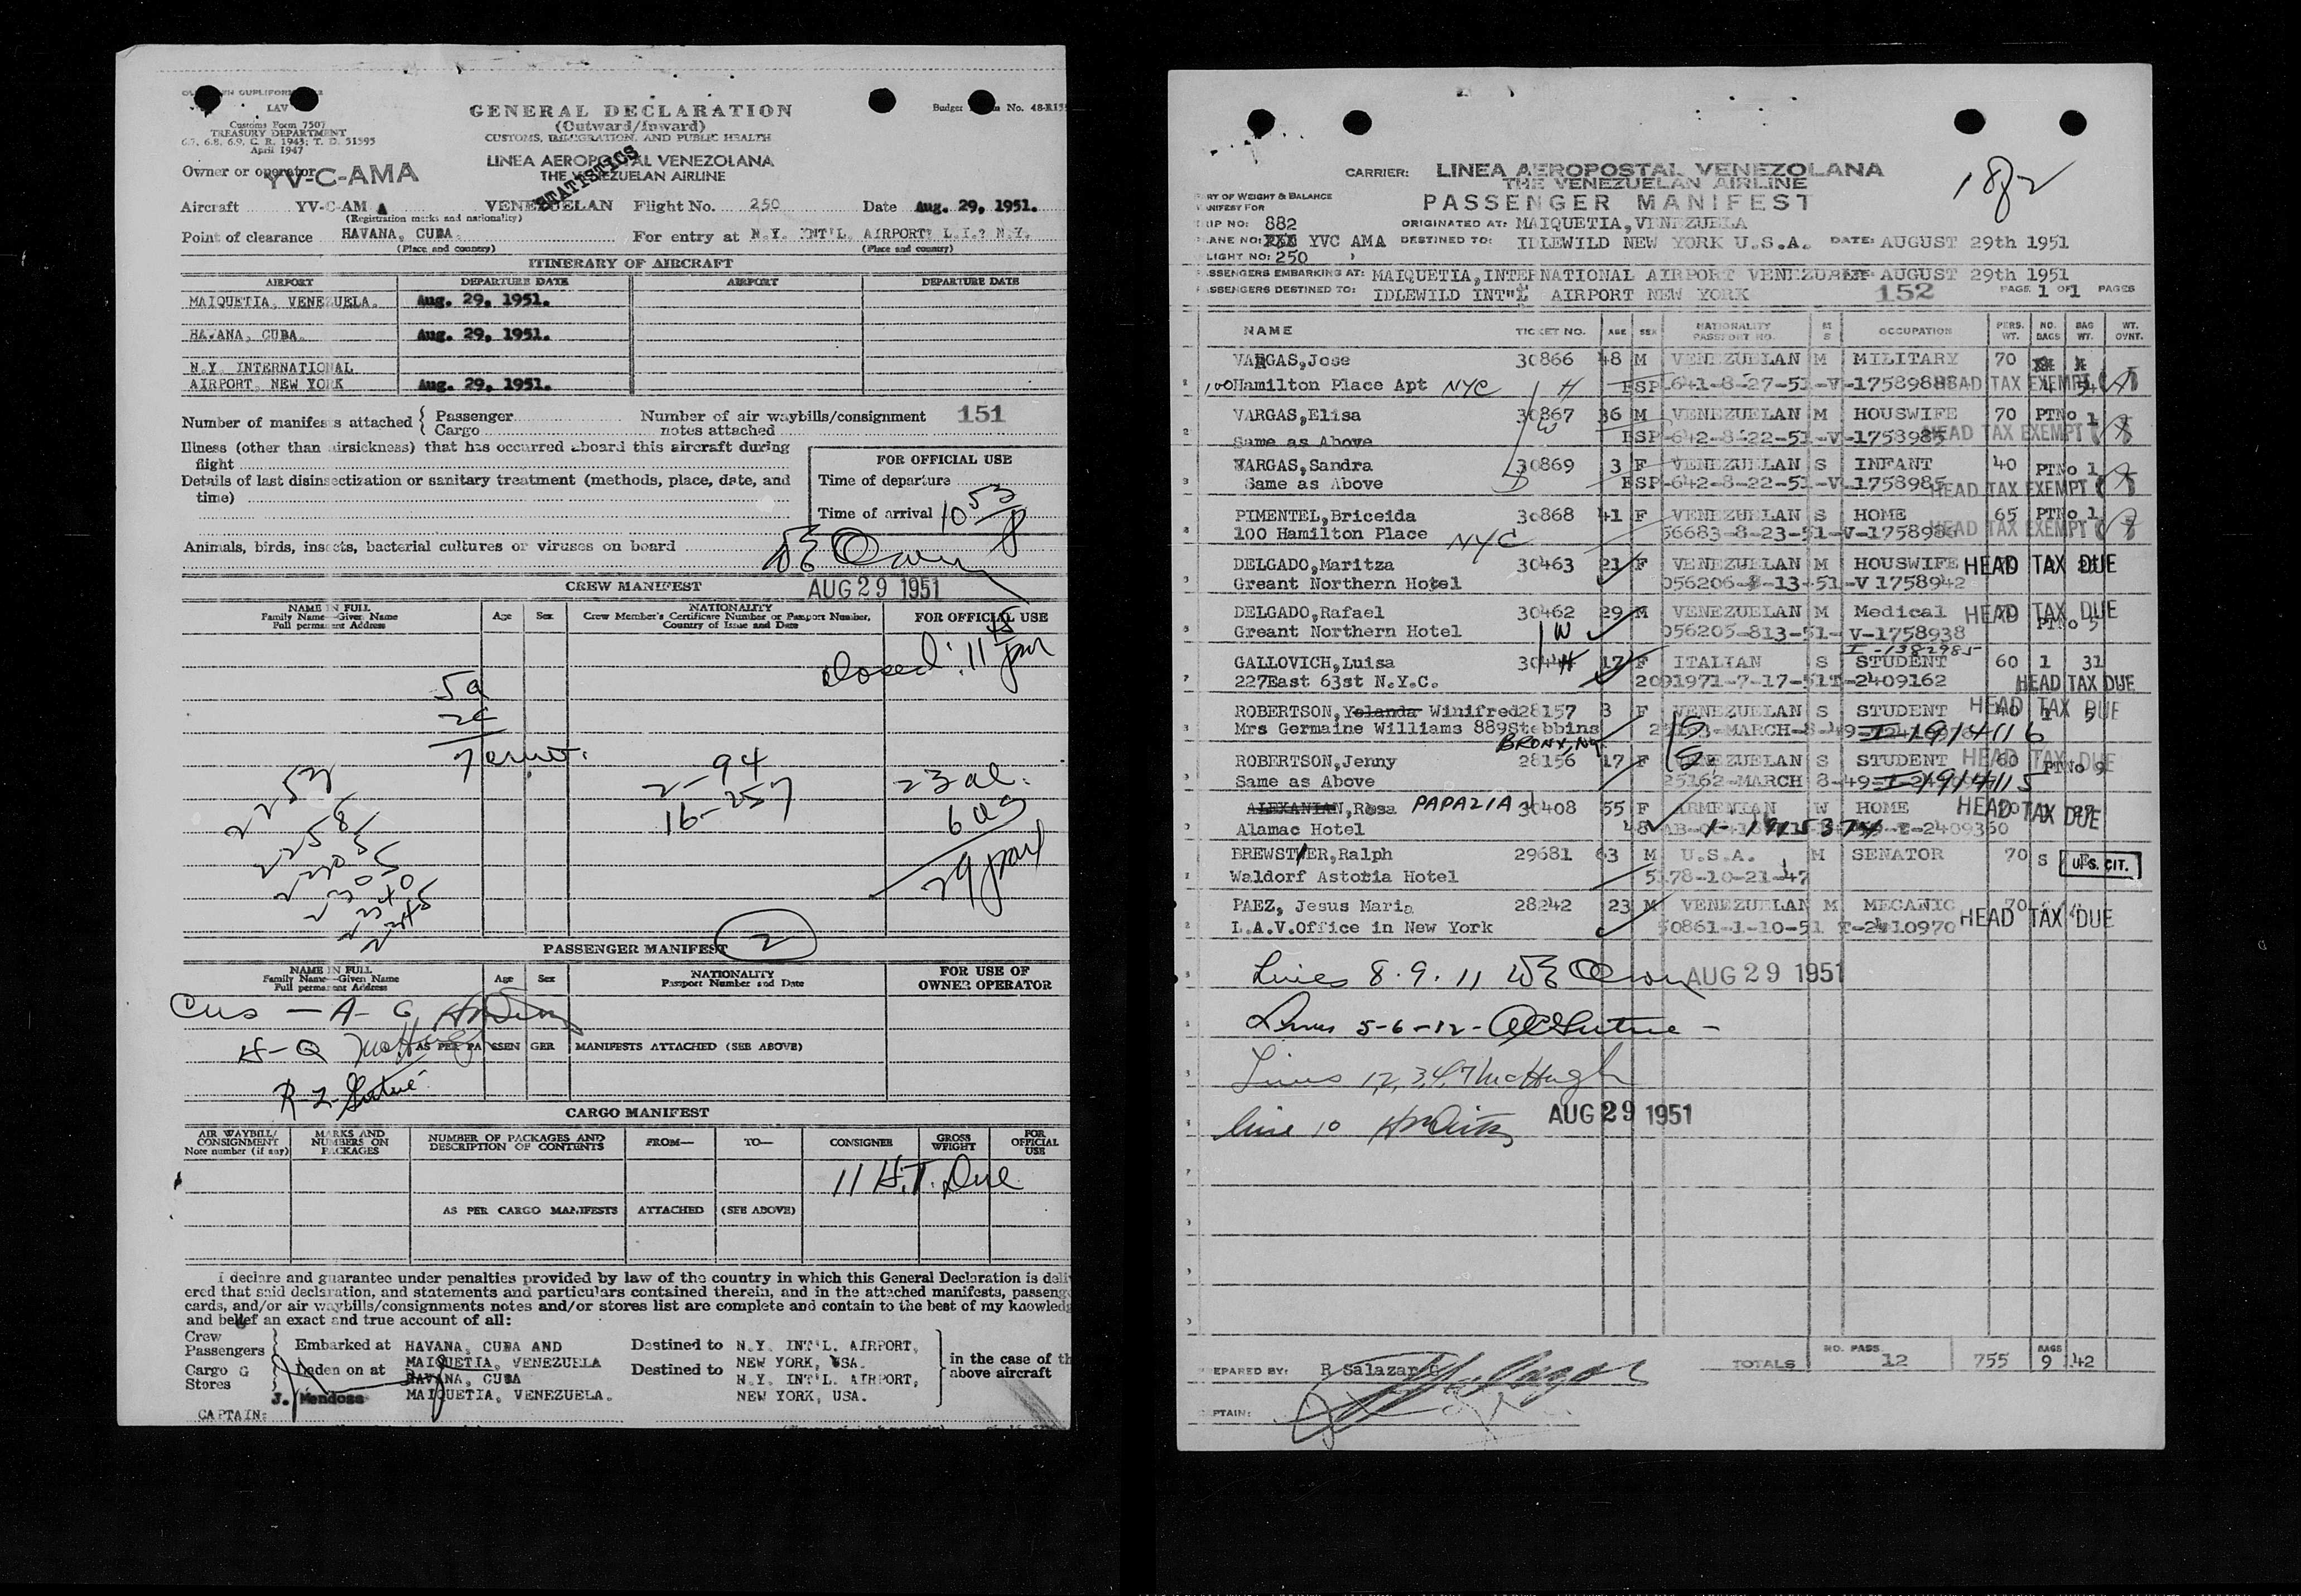 LAV
Customs Form 7507
TREASURY DEPARTMENT
6.7, 6.8, 6.9, C. R. 1943; T. D. 51595
April 1947
GENERAL DECLARATION
(Outward/Inward)
CUSTOMS, IMMIGRATION, AND PUBLIC HEALTH
Budget No. 48-R13
LINEA AEROPOSTAL VENEZOLANA
THE VENEZUELAN AIRLINE
STATISTICS
Owner or operator YV-C-AMA
Aircraft YV-C-AMA VENEZUELAN Flight No. 250 Date Aug. 29, 1951.
(Registration marks and nationality)
Point of clearance HAVANA, CUBA. For entry at N.Y. INT'L. AIRPORT? L.I.? N.Y.
(Place and country) (Place and country)
ITINERARY OF AIRCRAFT
AIRPORT DEPARTURE DATE AIRPORT DEPARTURE DATE
MAIQUETIA, VENEZUELA. Aug. 29, 1951.
HAVANA, CUBA. Aug. 29, 1951.
N.Y. INTERNATIONAL
AIRPORT, NEW YORK Aug. 29, 1951.
Number of manifests attached { Passenger Number of air waybills/consignment 151
Cargo notes attached
Illness (other than airsickness) that has occurred aboard this aircraft during
flight
Details of last disinsectization or sanitary treatment (methods, place, date, and
time)
FOR OFFICIAL USE
Time of departure
Time of arrival 10 53 P
Animals, birds, insects, bacterial cultures or viruses on board
CREW MANIFEST AUG 29 1951
NAME IN FULL
Family Name—Given Name
Full permanent Address
Age Sex
NATIONALITY
Crew Member's Certificate Number or Passport Number,
Country of Issue and Date
FOR OFFICIAL USE
closed: 11 45 pm
5a
2c
7 crew.
2-94
16-257
23 al.
6 us
29 pax
2253
2258
2305
2340
2345
PASSENGER MANIFEST 2
NAME IN FULL
Family Name—Given Name
Full permanent Address
Age Sex
NATIONALITY
Passport Number and Date
FOR USE OF
OWNER OPERATOR
Cus — A- G
H-Q McHugh
AS PER PASSENGER MANIFESTS ATTACHED (SEE ABOVE)
CARGO MANIFEST
AIR WAYBILL/
CONSIGNMENT
Note number (if any)
MARKS AND
NUMBERS ON
PACKAGES
NUMBER OF PACKAGES AND
DESCRIPTION OF CONTENTS
FROM— TO— CONSIGNEE
GROSS
WEIGHT
FOR
OFFICIAL
USE
11 H.T. Due
AS PER CARGO MANIFESTS ATTACHED (SEE ABOVE)
I declare and guarantee under penalties provided by law of the country in which this General Declaration is deliv
ered that said declaration, and statements and particulars contained therein, and in the attached manifests, passeng
cards, and/or air waybills/consignments notes and/or stores list are complete and contain to the best of my knowledg
and belief an exact and true account of all:
Crew
Passengers } Embarked at HAVANA, CUBA AND Destined to N.Y. INT'L. AIRPORT,
MAIQUETIA, VENEZUELA NEW YORK, USA.
Cargo G
Stores } Laden on at HAVANA, CUBA Destined to N.Y. INT'L. AIRPORT,
MAIQUETIA, VENEZUELA. NEW YORK, USA.
in the case of th
above aircraft
J. Mendoza
CAPTAIN:
CARRIER: LINEA AEROPOSTAL VENEZOLANA
THE VENEZUELAN AIRLINE
PASSENGER MANIFEST
182
RY OF WEIGHT & BALANCE
ANIFEST FOR
RIP NO: 882 ORIGINATED AT: MAIQUETIA, VENEZUELA
LANE NO: YVC AMA DESTINED TO: IDLEWILD NEW YORK U.S.A. DATE: AUGUST 29th 1951
LIGHT NO: 250
ASSENGERS EMBARKING AT: MAIQUETIA, INTERNATIONAL AIRPORT VENEZUELA AUGUST 29th 1951
ASSENGERS DESTINED TO: IDLEWILD INT"L AIRPORT NEW YORK 152 PAGE 1 OF 1 PAGES
NAME TICKET NO. AGE SEX NATIONALITY PASSPORT NO. M S OCCUPATION PERS. WT. NO. BAGS BAG WT. WT. OVNT.
VARGAS, Jose 30866 48 M VENEZUELAN M MILITARY 70
100 Hamilton Place Apt NYC H ESP-641-8-27-51-V-1758988 HEAD TAX EXEMPT
VARGAS, Elisa 30867 36 M VENEZUELAN M HOUSWIFE 70 PTNo 1
Same as Above W ESP-642-8-22-51-V-1758985 HEAD TAX EXEMPT
VARGAS, Sandra 30869 3 F VENEZUELAN S INFANT 40 PTNo 1
Same as Above D ESP-642-8-22-51-V-1758985 HEAD TAX EXEMPT
PIMENTEL, Briceida 30868 41 F VENEZUELAN S HOME 65 PTNo 1
100 Hamilton Place NYC 56683-8-23-51-V-1758986 HEAD TAX EXEMPT
DELGADO, Maritza 30463 21 F VENEZUELAN M HOUSWIFE HEAD TAX DUE
Greant Northern Hotel 056206-8-13-51-V 1758942
DELGADO, Rafael 30462 29 M VENEZUELAN M Medical HEAD TAX DUE
Greant Northern Hotel W 056205-813-51-V-1758938 PTNo 5
I-1382985
GALLOVICH, Luisa 3044 17 F ITALIAN S STUDENT 60 1 31
227East 63st N.Y.C. 2091971-7-17-51T-2409162 HEAD TAX DUE
ROBERTSON, Yolanda Winifred 28157 3 F VENEZUELAN S STUDENT 40 1 5 HEAD TAX DUE
Mrs Germaine Williams 889Stebbins MARCH-8-49 I-1914116
BRONX, NY
ROBERTSON, Jenny 28156 17 F VENEZUELAN S STUDENT 60 PTNo 9 HEAD TAX DUE
Same as Above 25162-MARCH 8-49 I-1914115
ALEXANIAN, Rosa PAPAZIAN 30408 55 F ARMENIAN W HOME HEAD TAX DUE
Alamac Hotel I-1915374 T-2409360
BREWSTER, Ralph 29681 63 M U.S.A. M SENATOR 70 S U.S. CIT.
Waldorf Astoria Hotel 5178-10-21-47
PAEZ, Jesus Maria 28242 23 M VENEZUELAN M MECANIC 70 HEAD TAX DUE
L.A.V.Office in New York 50861-1-10-51 T-2410970
Lines 8.9.11 AUG 29 1951
Lines 5-6-12-
Lines 1,2,3,4,7 McHugh
line 10 AUG 29 1951
EPARED BY: R Salazar G TOTALS NO. PASS. 12 755 BAGS 9 142
PTAIN: